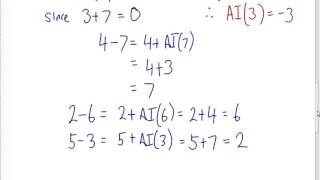 since 3+7=0 ∴ AI(3)=-3
4-7=4+AI(7)
=4+3
=7
2-6=2+AI(6)=2+4=6
5-3=5+AI(3)=5+7=2